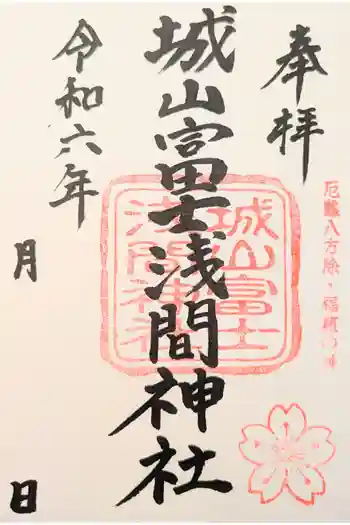 奉拝
厄難八方除・福
城山富士浅間神社
城山富士
浅間神社
令和六年
月
日